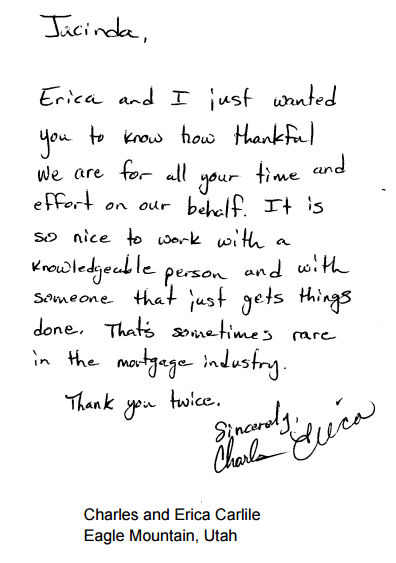 Jacinda,
Erica and I just wanted
you to know how thankful
we are for all your time and
effort on our behalf. It is
so nice to work with a
knowledgeable person and with
someone that just gets things
done. That's sometimes rare
in the mortgage industry.
Thank you twice.
Sincerely,
Charles Erica
Charles and Erica Carlile
Eagle Mountain, Utah